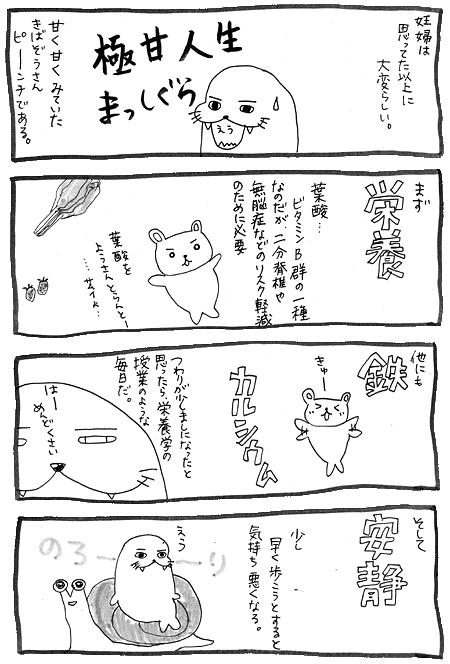 妊婦は
思ってた以上に
大変らしい。
極甘人生
まっしぐら
えう
甘く甘くみていた
きばぞうさん
ピーンチである。
まず
栄養
葉酸…
ビタミンB群の一種
なのだが、二分脊椎や
無脳症などのリスク軽減
のために必要
葉酸を
ようさんとらんとー
……サムイ…
他にも
鉄
きゅー
カルシウム
つわりが少しましになったと
思ったら、栄養学の
授業のような
毎日だ。
はー
めんどくさい
そして
安静
少し
早く歩こうとすると
気持ち悪くなる。
えう
のろーーり